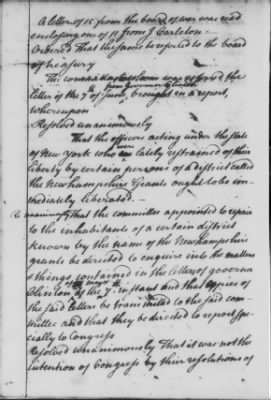 A letter of 15 from the board of war was read
enclosing one of 11 from J Carleton
Ordered That the same be referred to the board
of treasury
The committee to whom was referred the
from governor Clinton
letter of the 7th of June brought in a report,
whereupon
Resolved unanimously
That the officers acting under the state
of New York who were lately restrained of their
liberty by certain persons of a district called
the Newhampshire Grants ought to be im-
mediately liberated.—
Re unanimously That the committee appointed to repair
to the inhabitants of a certain district
known by the name of the Newhampshire
grants be directed to enquire into the matters
& things contained in the letters of governor
Clinton of the 7 instant and that copies of
the said letters be transmitted to the said com-
mittee and that they be directed to report spe-
cially to Congress
Resolved unanimously That it was not the
intention of Congress by their resolutions of